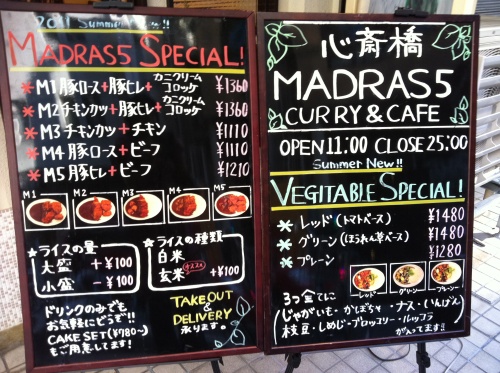 2011 Summer New!!
MADRAS5 SPECIAL!
*M1豚ロース+豚ヒレ+カニクリームコロッケ ¥1360
*M2チキンカツ+豚ヒレ+カニクリームコロッケ ¥1360
*M3チキンカツ+チキン ¥1110
*M4豚ロース+ビーフ ¥1110
*M5豚ヒレ+ビーフ ¥1210
M1 M2 M3 M4 M5
★ライスの量
大盛 +¥100
小盛 -¥100
★ライスの種類
白米
玄米 オススメ +¥100
ドリンクのみでも
お気軽にどうぞ!!
CAKE SET(¥780~)
もご用意してます!
TAKE OUT
&
DELIVERY
承ります。
心斎橋
MADRAS5
CURRY & CAFE
OPEN 11:00 CLOSE 25:00
Summer New!!
VEGITABLE SPECIAL!
*レッド(トマトベース) ¥1480
*グリーン(ほうれん草ベース) ¥1480
*プレーン ¥1280
レッド グリーン プレーン
3つ全てに
(じゃがいも・かぼちゃ・ナス・いんげん
枝豆・しめじ・ブロッコリー・ルッコラ)
が入ってます!!